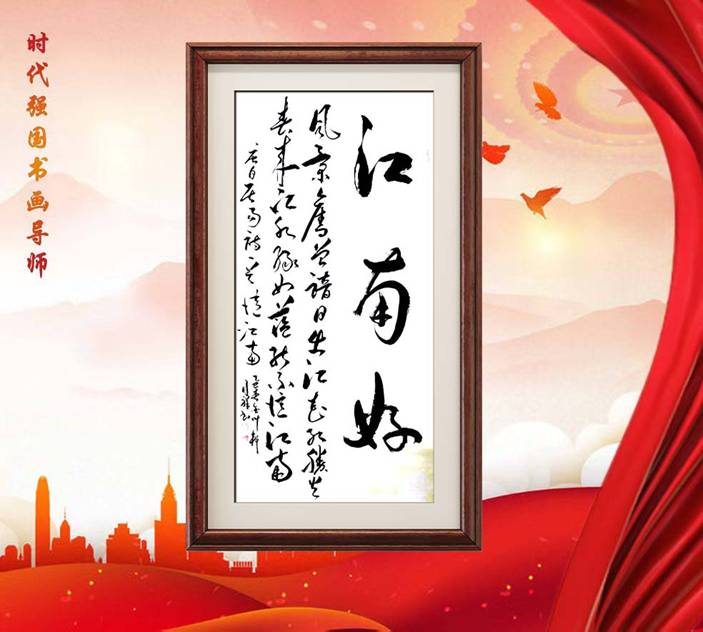 时代强国书画导师
江南好
风景旧曾谙日出江花红胜火
春来江水绿如蓝能不忆江南
唐白居易诗一首忆江南